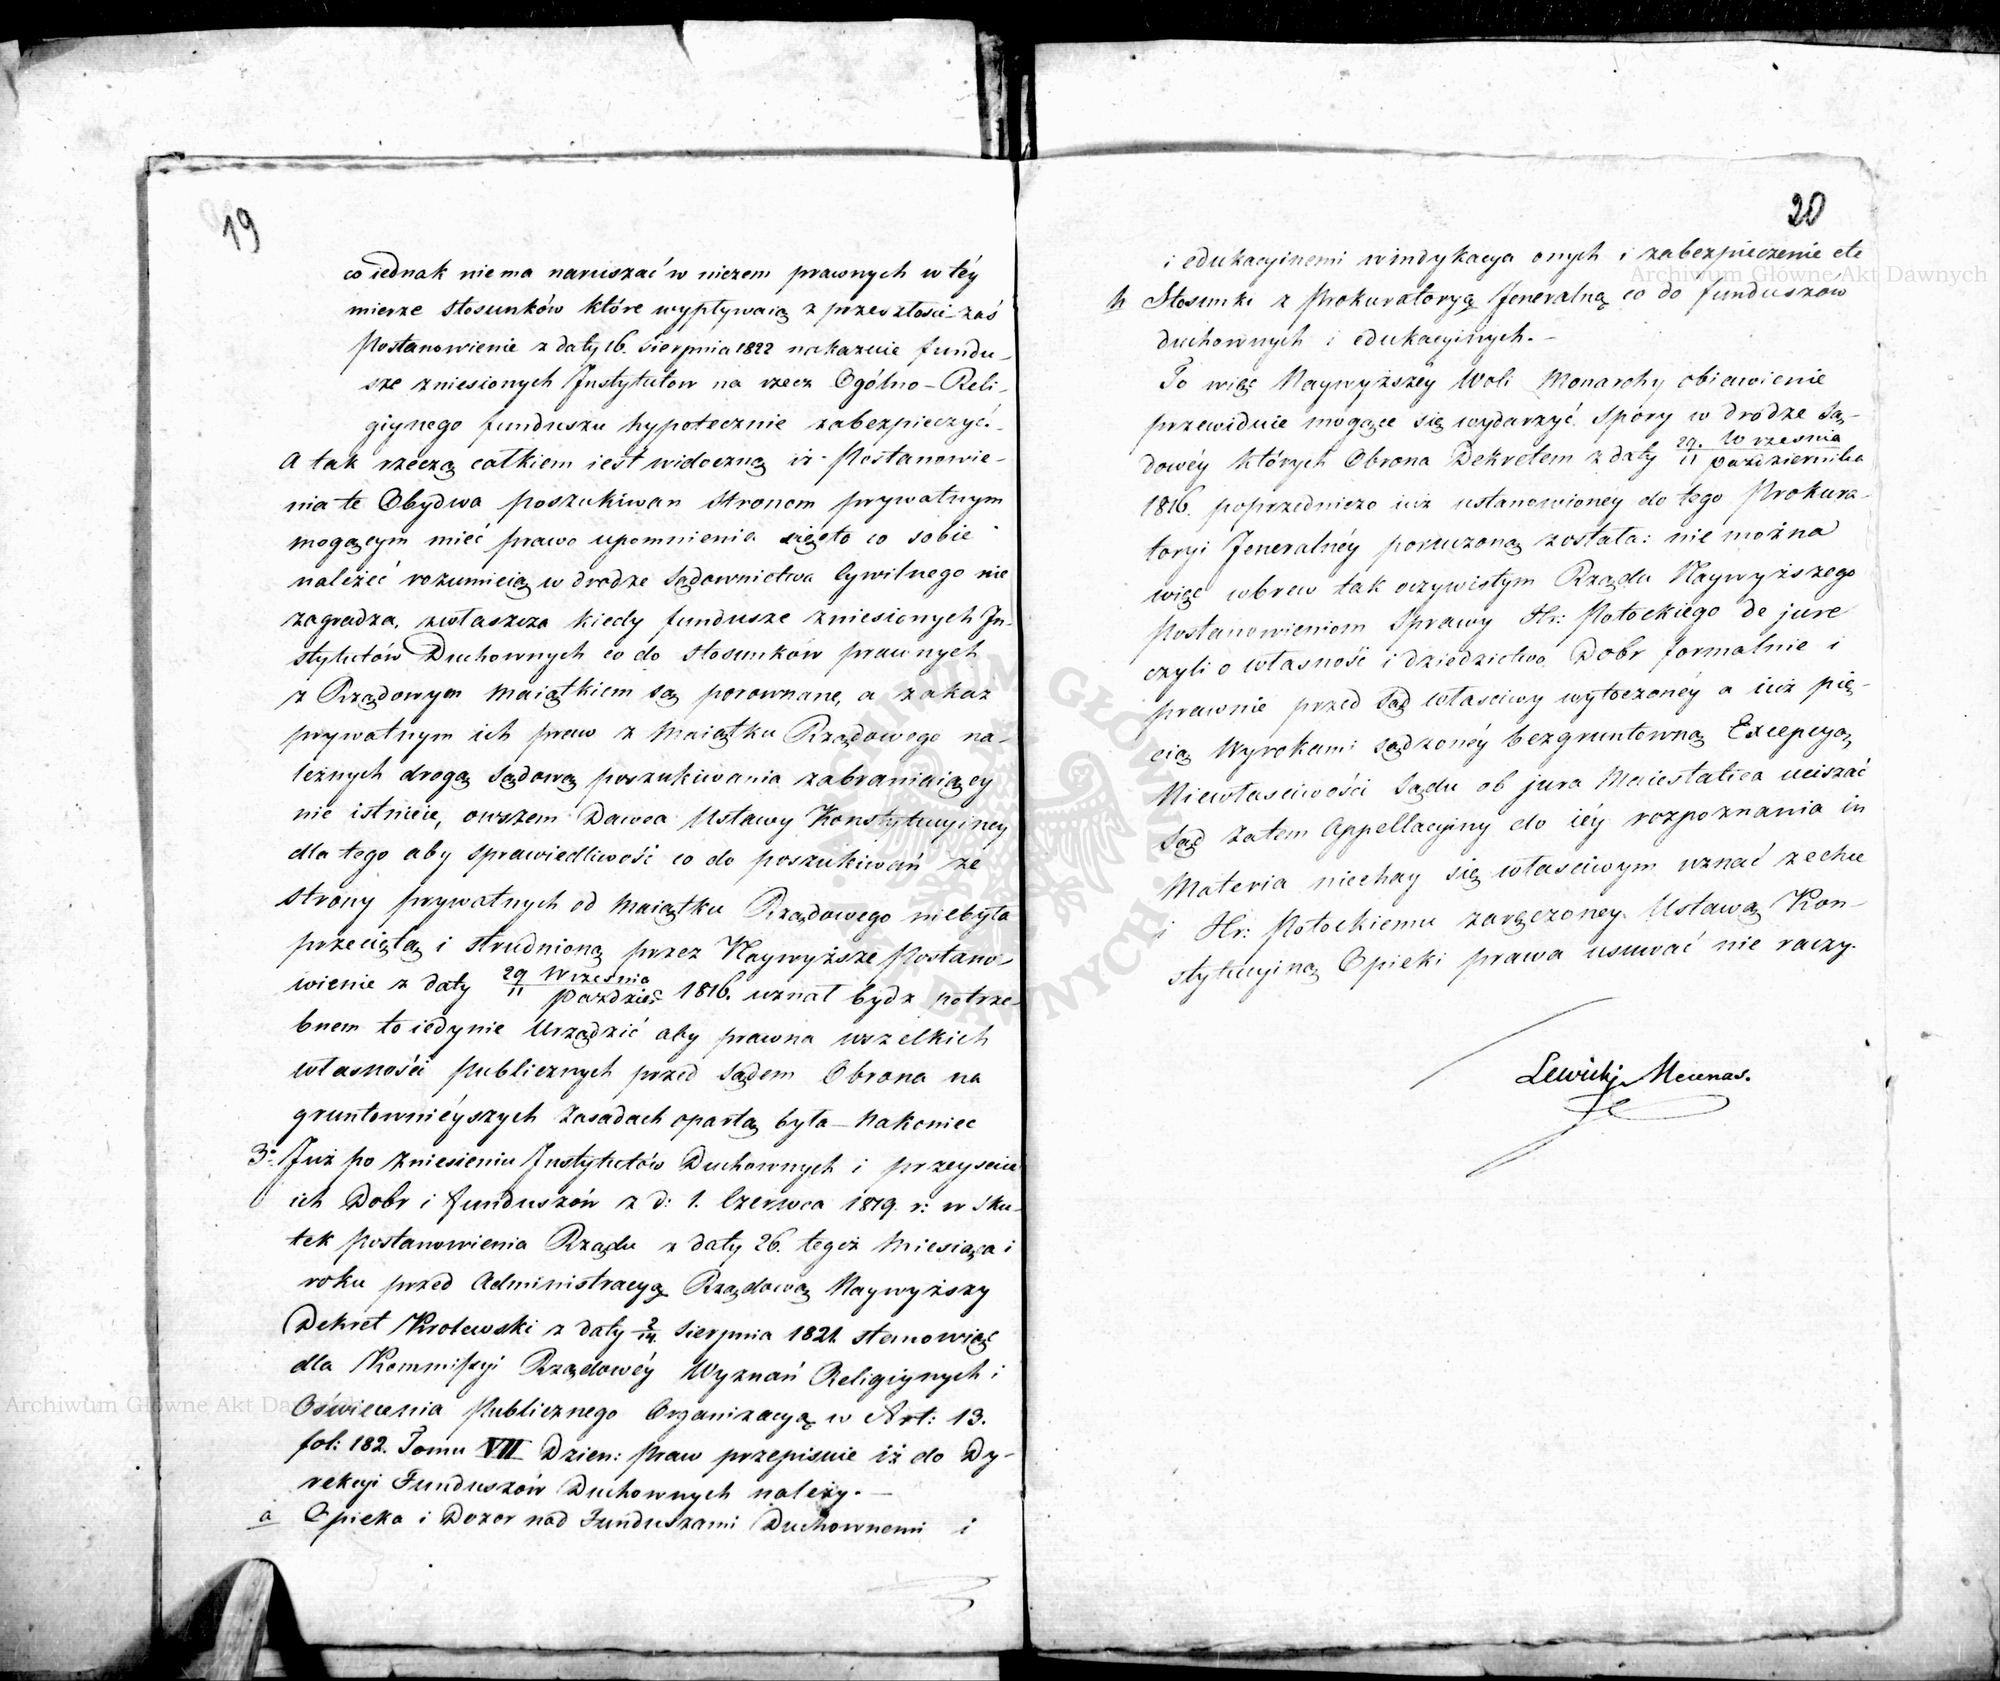 19
co iednak nie ma naruszać w niczem prawnych w téy
mierze stosunków które wypływaią z przeszłości – zaś
Postanowienie z daty 16. Sierpnia 1822 nakazuie fundu-
sze zniesionych Instytutow na rzecz Ogólno – Reli-
giynego funduszu hypotecznie zabezpieczyć. –
A tak rzeczą całkiem iest widoczną iż Postanowie-
nia te Obydwa poszukiwan Stronom prywatnym
mogącym mieć prawo upomnienia się o to co sobie
należeć rozumieią w drodze Sądownictwa Cywilnego nie
zagradza, zwłaszcza kiedy fundusze zniesionych In-
stytutów Duchownych co do stosunków prawnych
z Rządowym Maiątkiem są porownane, a zakaz
prywatnym ich praw z Maiątku Rządowego na-
leżnych drogą Sądową poszukiwania zabraniaiący
nie istnieie, owszem Dawca Ustawy Konstytucyiney
dla tego aby Sprawiedliwość co do poszukiwań ze
Strony prywatnych od Maiątku Rządowego niebyła
przeciętą i strudnioną przez Naywyższe Postano-
wienie z daty 29 Września / 11 Paździer 1816. uznał bydz potrze-
bnem to iedynie Urządzić aby prawna wszelkich
własności Publicznych przed Sądem Obrona na
gruntownieyszych Zasadach opartą była – Nakoniec
3° Już po zniesieniu Instytutów Duchownych i przeysciu
ich Dobr i funduszów z d: 1. Czerwca 1819. r: w sku-
tek Postanowienia Rządu z daty 26. tegoż Miesiąca i
roku przed Administracyą Rządową Naywyższy
Dekret Krolewski z daty 2/14. Sierpnia 1821 stanowiąc
dla Kommissyi Rządowéy Wyznań Religiynych i
Oświecenia Publicznego Organizacyą w Art: 13.
fol: 182. Tomu VII Dzien: Praw przepisuie iż do Dy-
rekcyi Funduszów Duchownych należy. —
a Opieka i Dozor nad Funduszami Duchownemi i
20
i edukacyinemi windykacya onych i zabezpieczenie etc
h Stosunki z Prokuratoryą Jeneralną co do funduszów
duchownych i edukacyinych. –
To więc Naywyższéy Woli Monarchy obiawienie
przewiduie mogące się wydarzyć Spory w drodze Są-
dowéy których Obrona Dekretem z daty 29. Września / 11 Października
1816. poprzedniczo iuż ustanowioney do tego Prokura-
toryi Jeneralnéy poruczoną została: nie można
więc wbrew tak oczywistym Rządu Naywyższego
Postanowieniom Sprawy Hr: Potockiego de jure
czyli o własność i dziedzictwo Dobr formalnie i
prawnie przed Sąd właściwy wytoczonéy a iuż pię-
cią Wyrokami sądzonéy bezgruntowną Excepcyą
Niewłaściwości Sądu ob jura Maiestatica uciszać
Sąd Zatem Appellacyiny do iéy rozpoznania in
Materia niechay się właściwym uznać zechce
i Hr: Potockiemu zaręczoney Ustawą Kon-
stytucyiną Opieki prawa usuwać nie raczy.
Lewicki Mecenas.
Archiwum Główne Akt Dawnych
Archiwum Główne Akt Dawnych